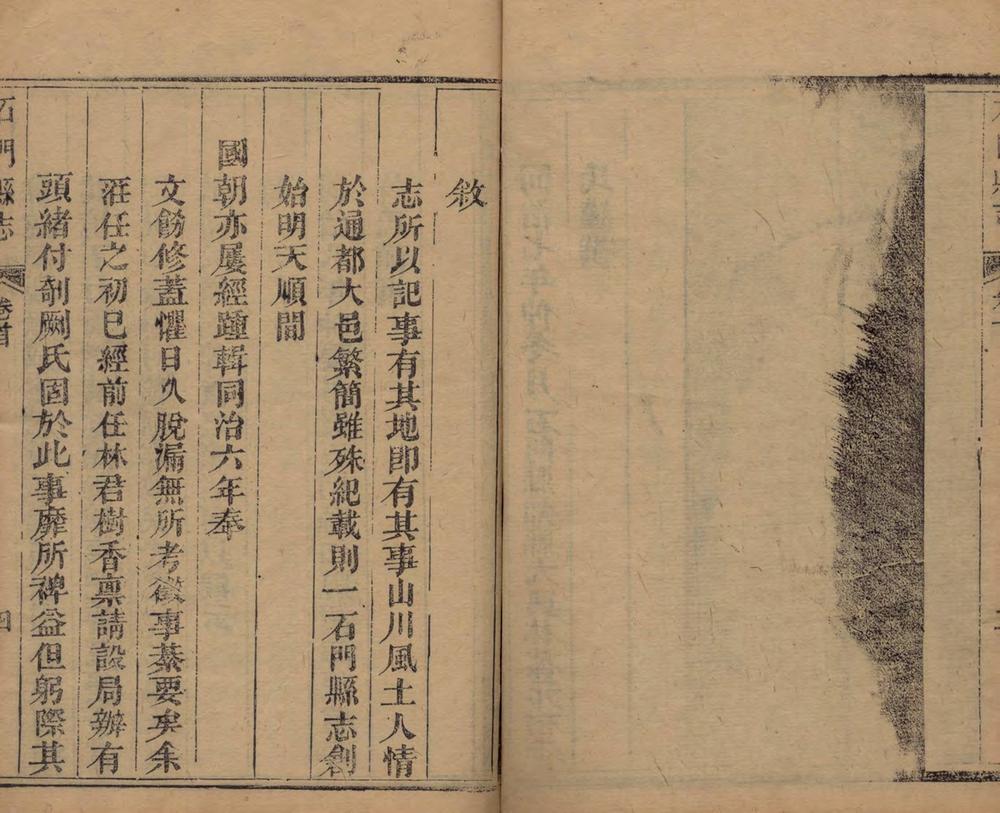 敘
志所以記事有其地卽有其事山川風土人情
於通都大邑繁簡雖殊紀載則一石門縣志創
始明天順間
國朝亦屢經踵輯同治六年奉
文飭修蓋懼日久脫漏無所考徵事綦要矣余
涖任之初已經前任林君樹香稟請設局辦有
頭緒付剞劂氏固於此事靡所裨益但躬際其
石門縣志
卷首
四